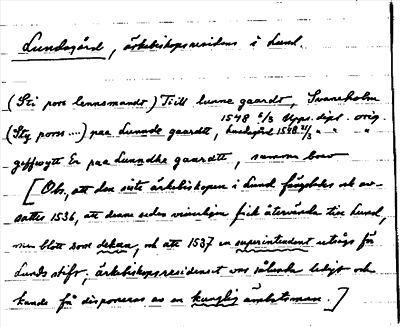 Lundagård, ärkebiskopsresidens i Lund.
(Sti pors lennsmandt) Till lunne gaardt, Svaneholm
1548 6/3 Upps. dipl. orig.
(Stj porss ....) paa Lunnde gaardtt, 1548 21/3 " " "
geffwytt En paa Lunndhe gaardtt, samma brev
[Obs, att den siste ärkebiskopen i Lund fängslades och av-
sattes 1536, att denne sedan visserligen fick återvända till Lund,
men blott som dekan, och att 1537 en superintendent utsågs för
Lunds stift; ärkebiskopsresidenset var således ledigt och
kunde få disponeras av en kunglig ämbetsman.]